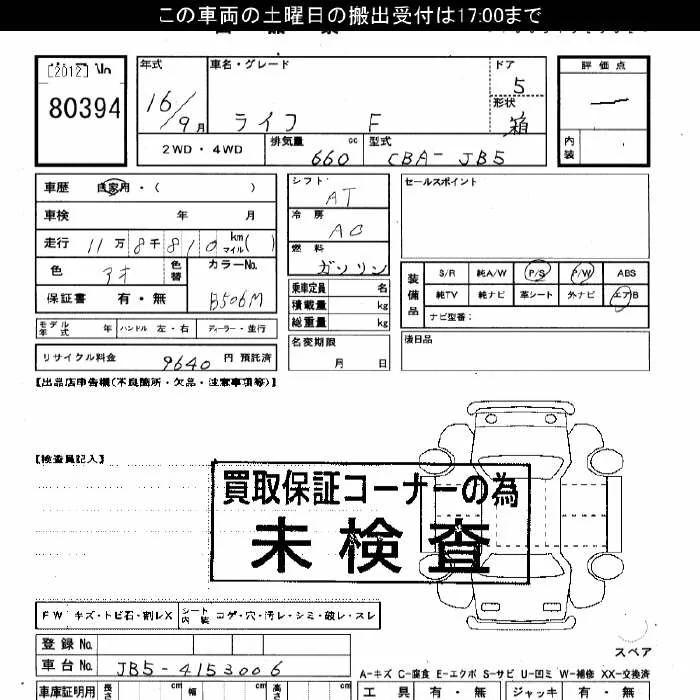 この車両の土曜日の搬出受付は17:00まで
[2012] No
80394
年式
16/9月
車名・グレード
ライフ F
ドア
5
形状
箱
評価点
内装
2WD・4WD
排気量
660 cc
型式
CBA-JB5
車歴 自家用・( )
車検 年 月
走行 11万8千810 km マイル( )
色 アオ 色替
カラーNo.
B506M
保証書 有・無
モデル年式 年 ハンドル 左・右 ディーラー・並行
リサイクル料金 9640 円 預託済
シフト
AT
冷房
AC
燃料
ガソリン
乗車定員 名
積載量 kg
総重量 kg
名変期限
月 日
セールスポイント
装備品
S/R 純A/W P/S P/W ABS
純TV 純ナビ 革シート 外ナビ エアB
ナビ型番:
後日品
【出品店申告欄(不良箇所・欠品・注意事項等)】
【検査員記入】
買取保証コーナーの為
未検査
FW キズ・トビ石・割レX シート内装 コゲ・穴・汚レ・シミ・破レ・スレ
登録No.
車台No. JB5-4153006
スペア
A-キズ C-腐食 E-エクボ S-サビ U-凹ミ W-補修 XX-交換済
車庫証明用 長さ cm 幅 cm 高さ cm
工具 有・無 ジャッキ 有・無